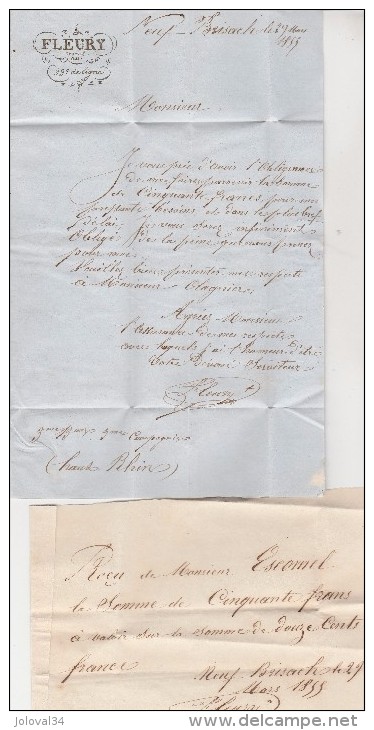 FLEURY
99e de ligne
Neuf-Brisach le 29 Mars
1855
Monsieur
Je vous prie d'avoir l'Obligeance
de me faire parvenir la somme
de Cinquante francs, pour mes
pressants besoins et dans le plus bref
délai, Je vous serez infiniment
Obligé de la peine que vous prenez
pour moi
Veuillez bien présenter mes respects
à Monsieur
Agréez Monsieur
l'Assurance de mes respects
avec laquelle j'ai l'honneur d'être
Votre Dévoué Serviteur
Fleury
Compagnie
(haut Rhin)
Reçu de Monsieur Escomel
la Somme de Cinquante frans
à valoir sur la somme de douze Cents
francs
Neuf Brisach le 29
Mars 1855
Fleury
joloval34
delcampe.net